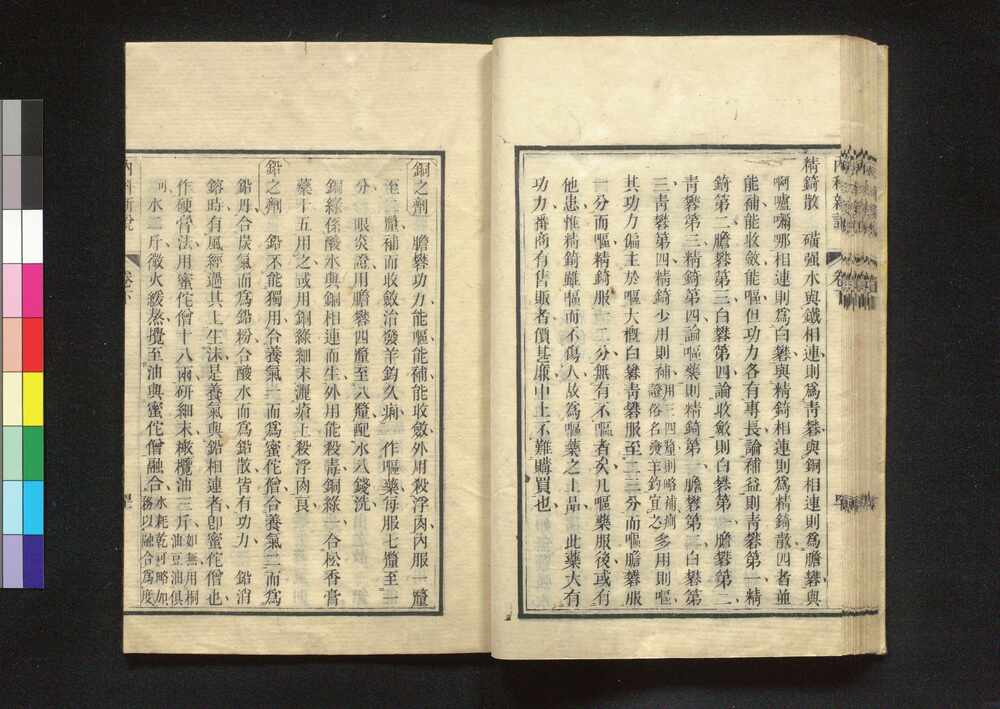 內科新說
卷下
精錡散　磺强水與鐵相連則爲靑礬與銅相連則爲膽礬與
啊嚧囒哪相連則爲白礬與精錡相連則爲精錡散四者並
能補能收斂能嘔但功力各有專長論補益則靑礬第一精
錡第二膽礬第三白礬第四論收斂則白礬第一膽礬第二
靑礬第三精錡第四論嘔藥則精錡第一膽礬第二白礬第
三靑礬第四精錡少用則補用三四釐則略補癎證俗名發羊鈞宜之多用則嘔
其功力偏主於嘔大槪白礬靑礬服至二三分而嘔膽礬服
一分而嘔精錡服一二分無有不嘔者次凡嘔藥服後或有
他患惟精錡雖嘔而不傷人故爲嘔藥之上品　此藥大有
功力番商有售販者價甚廉中土不難購買也
銅之劑　膽礬功力能嘔能補能收斂外用殺浮肉內服一釐
至二釐補而收斂治發羊鈞久痢　作嘔藥每服七釐至一
分　眼炎證用膽礬四釐至八釐配水八錢洗
銅綠係酸水與銅相連而生外用能殺毒銅綠一合松香膏
藥十五用之或用銅綠細末灑瘡上殺浮肉良
鉛之劑　鉛不能獨用合養氣一而爲蜜侘僧合養氣二而爲
鉛丹合炭氣而爲鉛粉合酸水而爲鉛散皆有功力　鉛消
鎔時有風經過其上生沫是養氣與鉛相連者卽蜜侘僧也
作硬膏法用蜜侘僧十八兩硏細末橄欖油三斤如無用桐油豆油俱
可水二斤微火緩熬攪至油與蜜侘僧融合水耗乾可略加務以融合爲度
內科新說
卷下